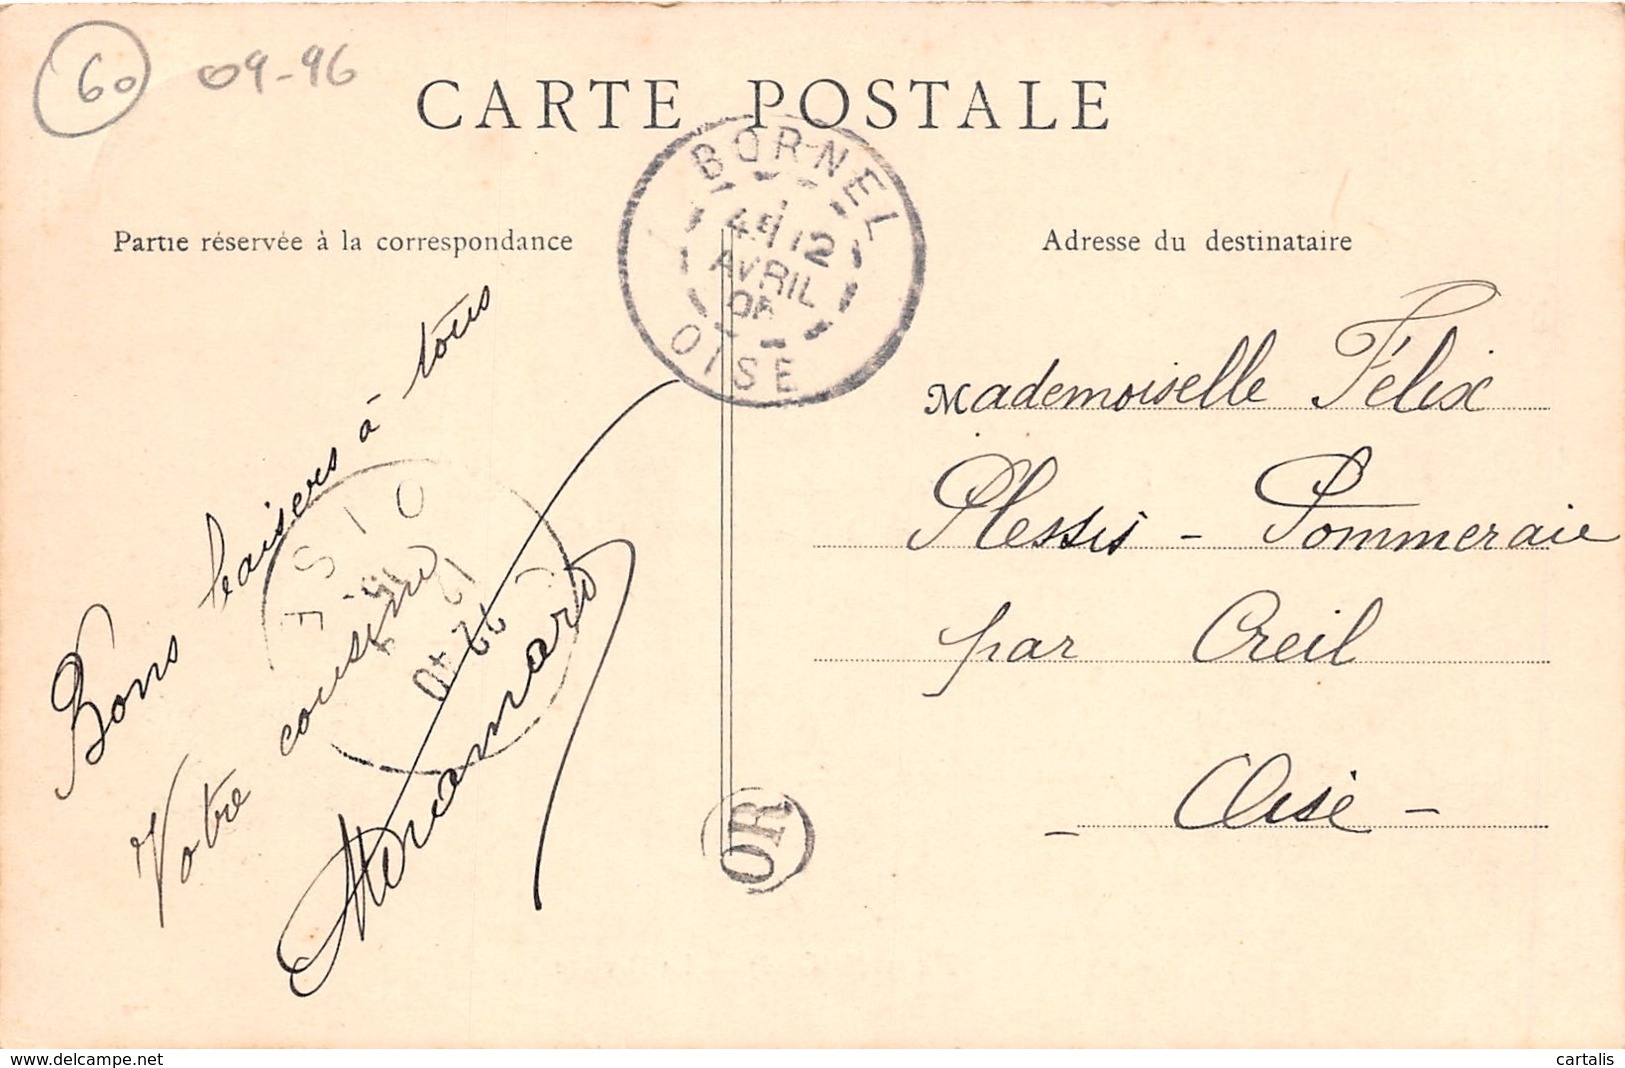 60 09-96
CARTE POSTALE
BORNEL
12
AVRIL
OISE
Partie réservée à la correspondance
Adresse du destinataire
Bons baisers à tous
Votre cousine
OISE
OR
Mademoiselle Félix
Plessis - Pommeraie
par Creil
- Oise -
www.delcampe.net
cartalis